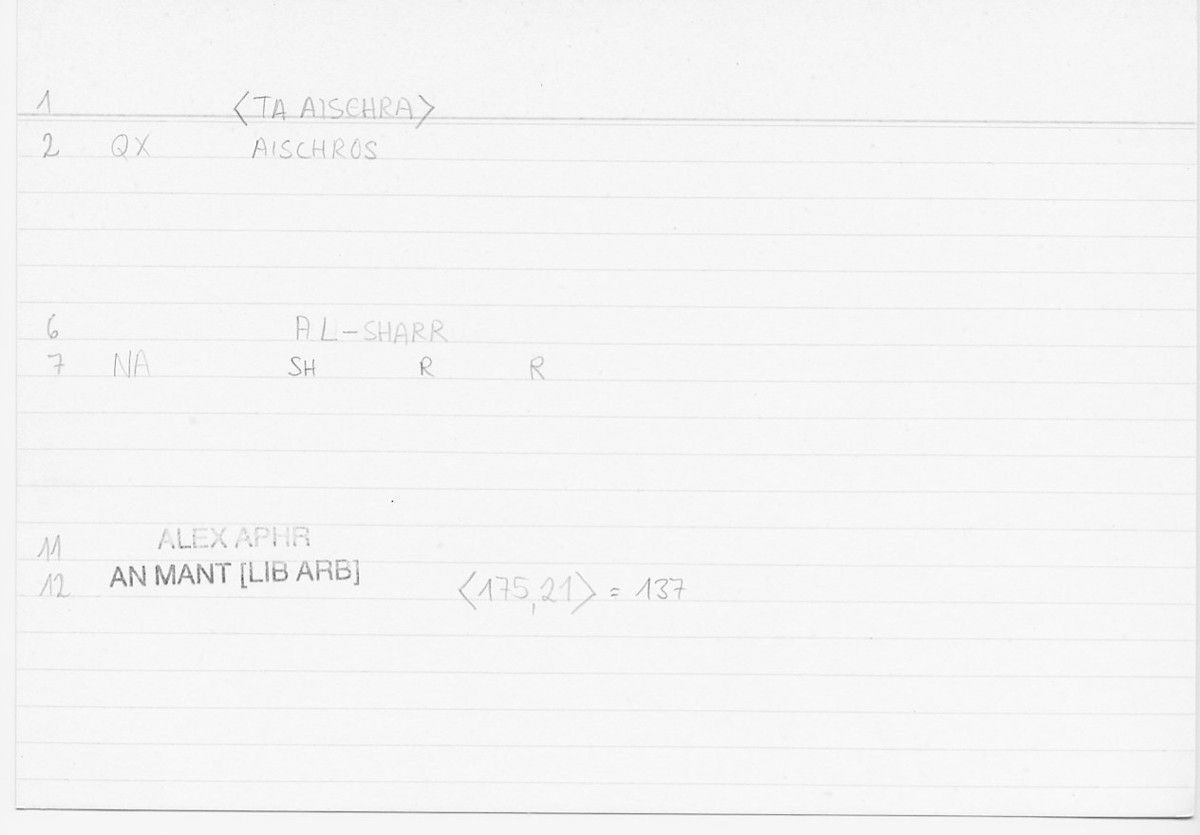 1 <TA AISCHRA>
2 QX AISCHROS
6 AL-SHARR
7 NA SH R R
11 ALEX APHR
12 AN MANT [LIB ARB] <175,21> = 137